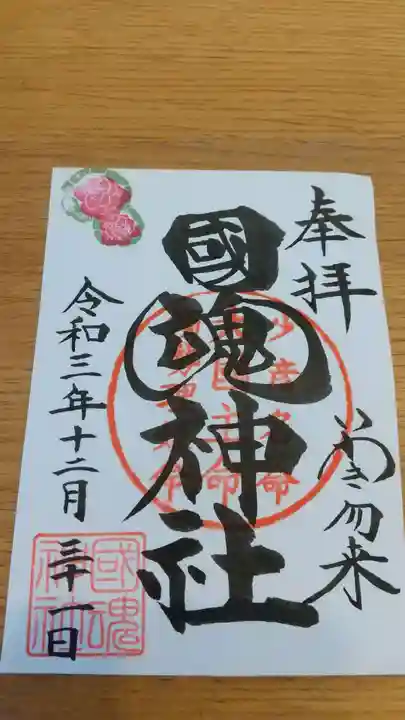 奉拝
いわき勿来
國魂神社
令和三年十二月
三十一日
國魂
神社